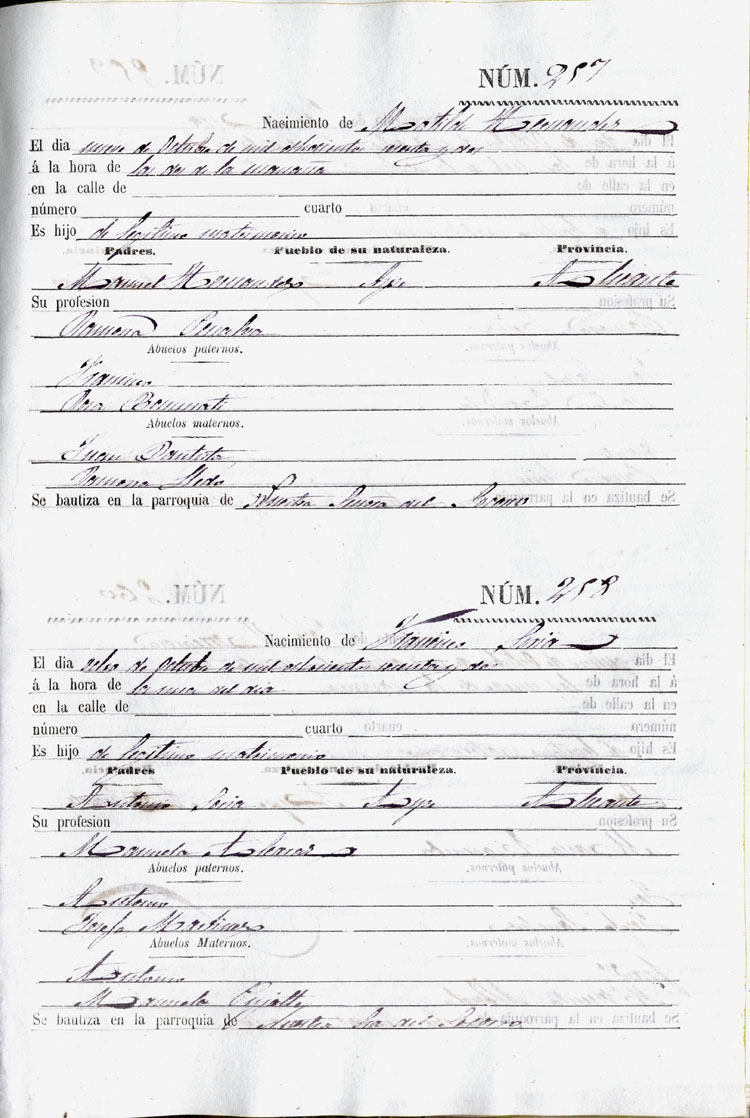 NÚM. 257
Nacimiento de Matilde Hernandez
El dia nueve de Octubre de mil ochocientos sesenta y dos
á la hora de las dos de la mañana
en la calle de
número cuarto
Es hijo de legítimo matrimonio
Padres. Pueblo de su naturaleza. Provincia.
Manuel Hernandez Aspe Alicante
Su profesion
Ramona Penalva
Abuelos paternos.
Francisco
Rosa Bonmati
Abuelos maternos.
Juan Bautista
Ramona
Se bautiza en la parroquia de Nuestra Señora del Socorro
NÚM. 258
Nacimiento de Francisco Soria
El dia ocho de Octubre de mil ochocientos sesenta y dos
á la hora de la una del dia
en la calle de
número cuarto
Es hijo de legítimo matrimonio
Padres Pueblo de su naturaleza. Provincia.
Antonio Soria Aspe Alicante
Su profesion
Manuela
Abuelos paternos.
Antonio
Josefa Martinez
Abuelos Maternos.
Antonio
Manuela
Se bautiza en la parroquia de Nuestra Sra del Socorro